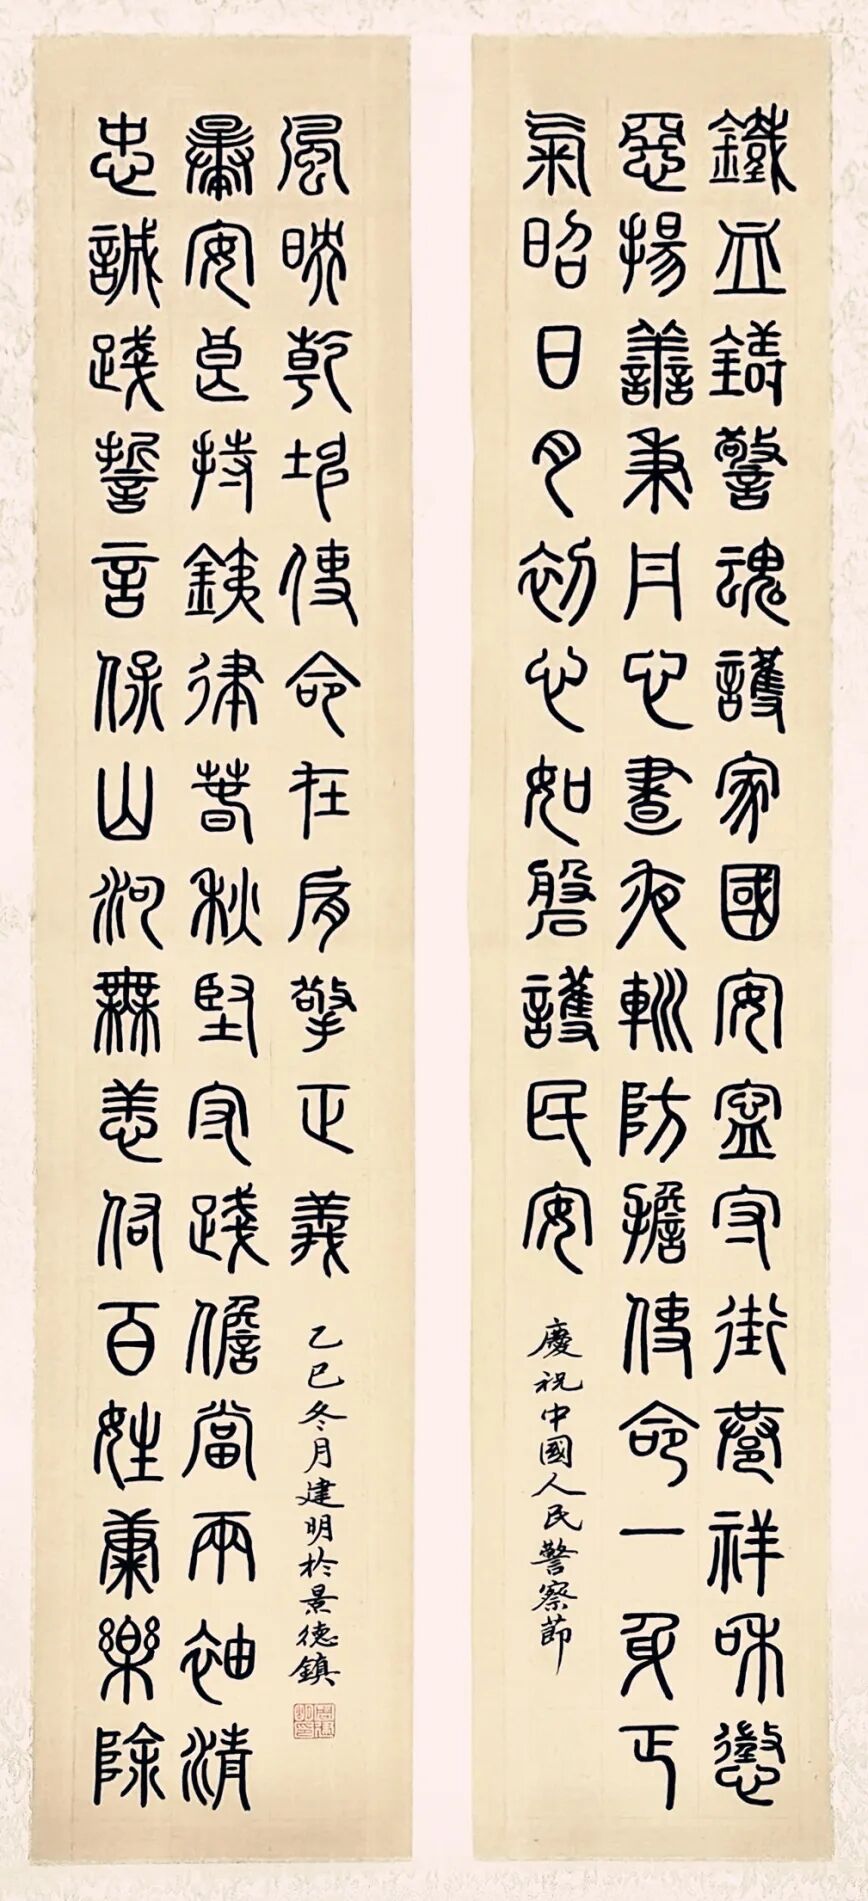 鐵血鑄警魂護家國安寧守街巷祥和懲
惡揚善秉丹心晝夜輪防擔使命一身正
氣昭日月初心如磐護民安
慶祝中國人民警察節
忠誠踐誓言保山河無恙佑百姓康樂除
暴安良持銕律春秋堅守踐儋當兩袖清
風映乾坤使命在肩擎正義
乙巳冬月建明於景德鎮